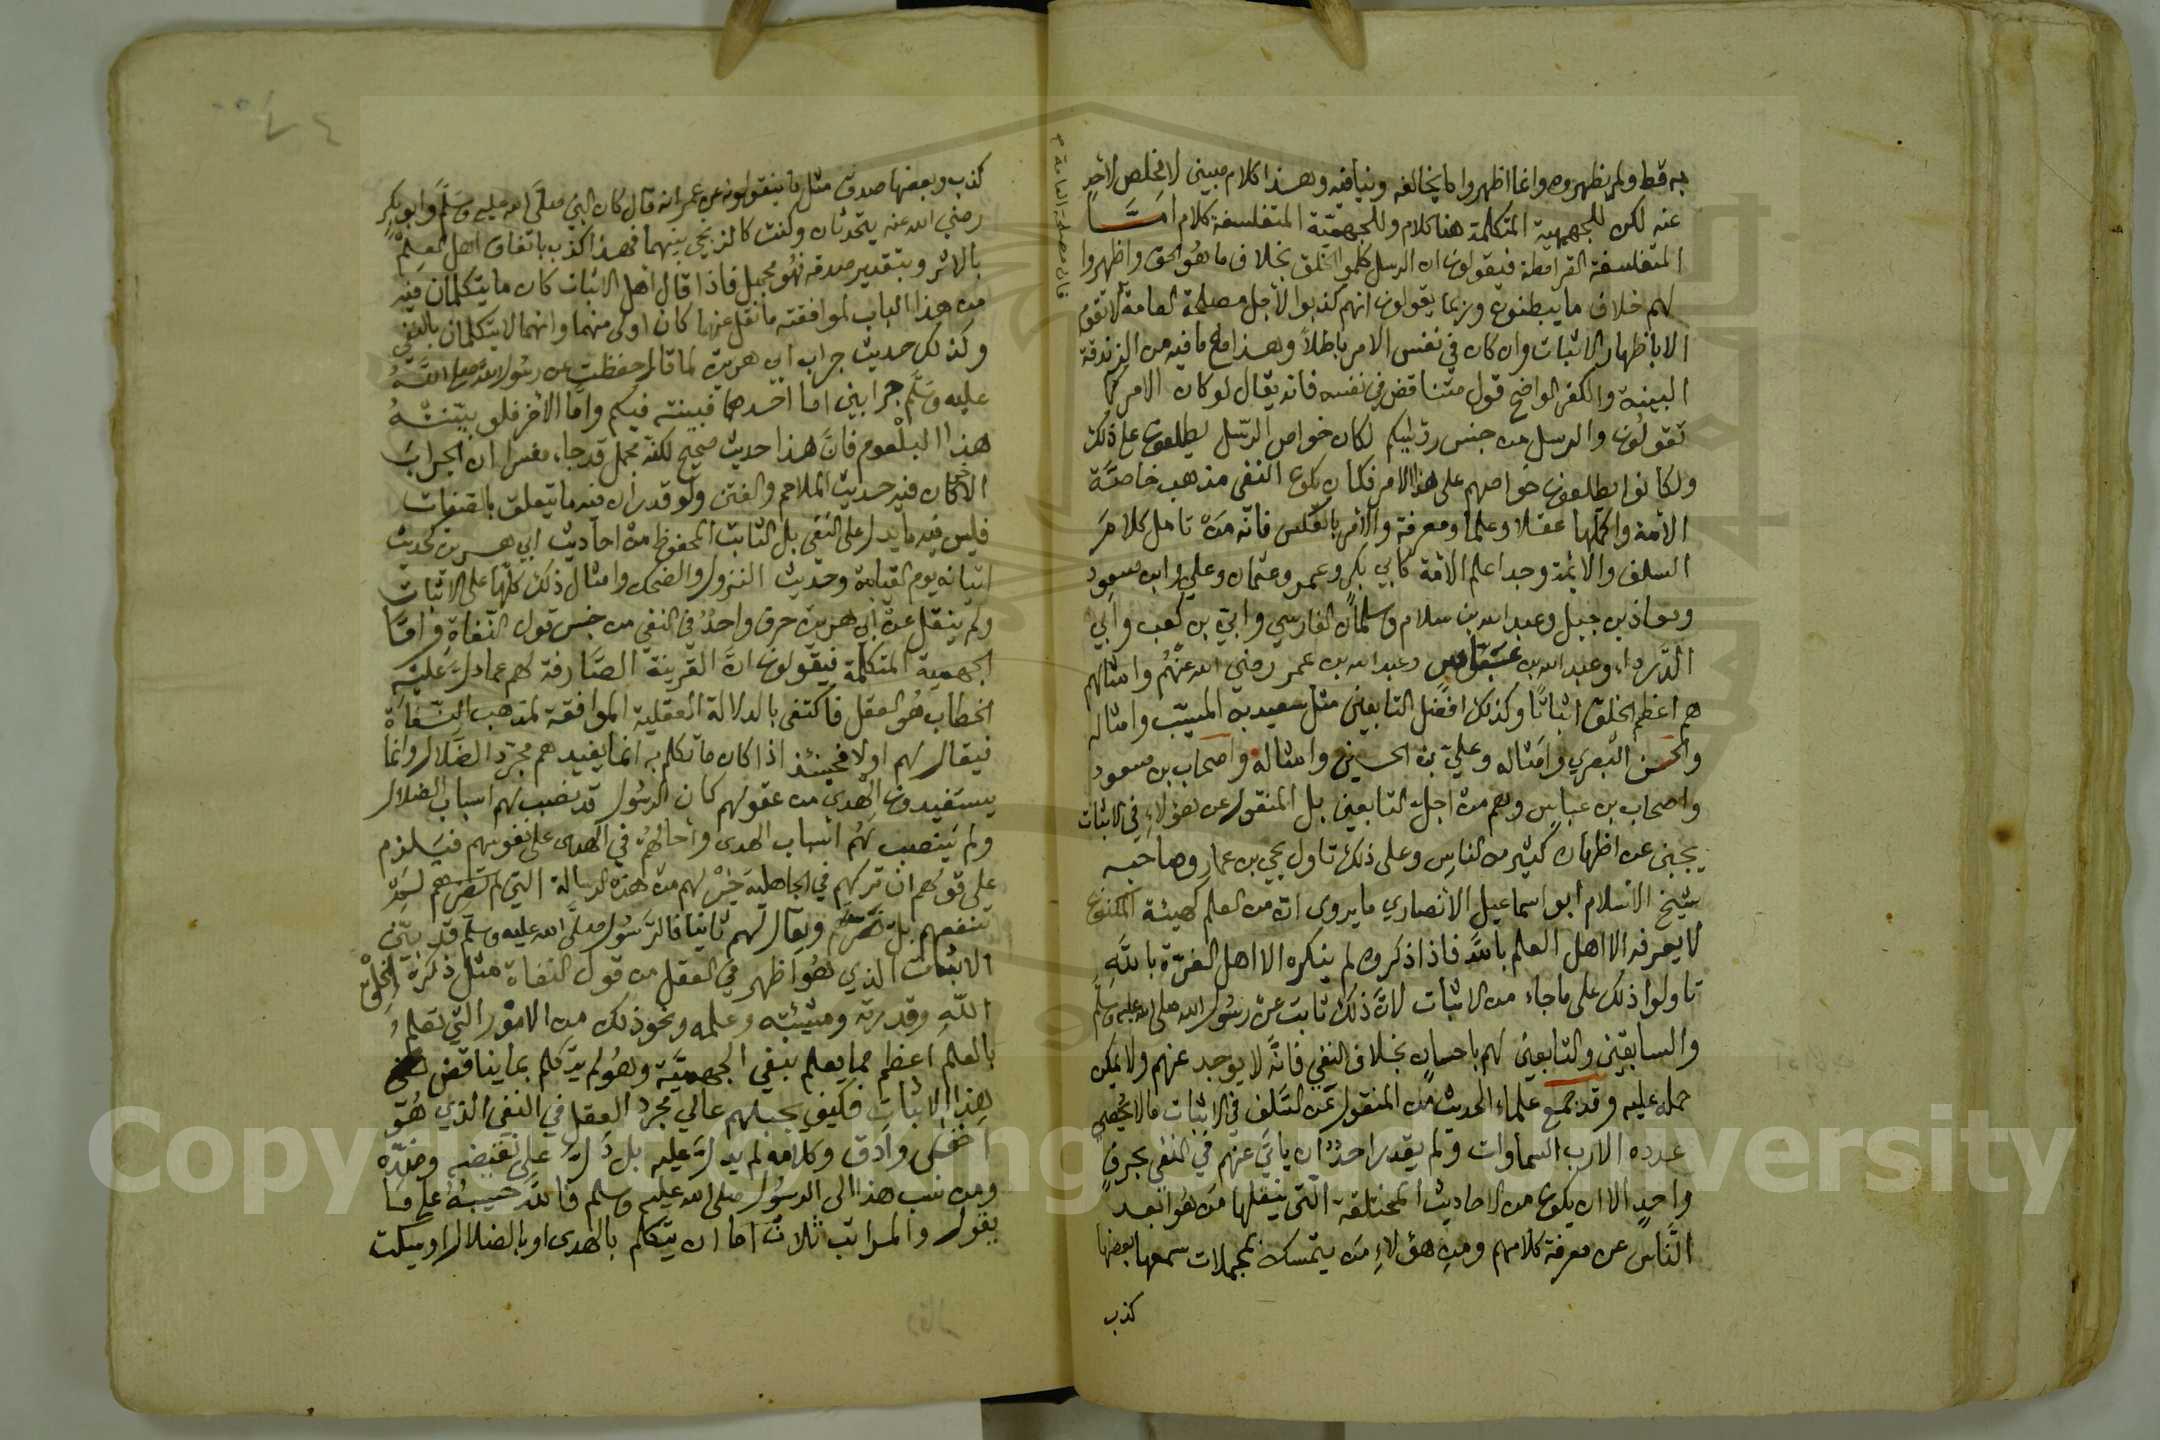 به قط ولم يظهروه وانما اظهروا ما يخالفه وينافيه وهذا كلام مبين لا مخلص لاحد
عنه لكن للجهمية المتكلمة هنا كلام وللجهمية المتفلسفة كلام امّا
المتفلسفة القرامطة فيقولون ان الرسل كلموا الخلق بخلاف ما هو الحق واظهروا
لهم خلاف ما يبطنون وربما يقولون انهم كذبوا لاجل مصلحة العامة لا تقوم
الا باظهار الاثبات وان كان في نفس الامر باطلاً وهذا مع ما فيه من الزندقة
البينة والكفر الواضح قول متناقض في نفسه فانه يقال لو كان الامر كما
تقولون والرسل من جنس رؤسائكم لكان خواص الرسل يطلعون على ذلك
ولكانوا يطلعون خواصهم على هذا الامر فكان يكون النفي مذهب خاصّة
الأمة واكملها عقلا وعلما ومعرفة والأمر بالعكس فانّه من تامل كلام
السلف والائمة وجد اعلم الامّة كابي بكر وعمر وعثمان وعلي وابن مسعود
ومعاذ بن جبل وعبد الله بن سلام وسلمان الفارسي وابي بن كعب وابي
الدّرداء وعبد الله بن عبّاس وعبد الله بن عمر رضي الله عنهم وامثالهم
هم اعظم الخلق اثباتًا وكذلك افضل التابعين مثل سعيد بن المسيّب وامثاله
والحسن البصري وامثاله وعليّ بن الحسين وامثاله واصحاب بن مسعود
واصحاب بن عباس وهم من اجلّ التابعين بل المنقول عن هؤلاء في الاثبات
يجبن عن اظهاره كثير من الناس وعلى ذلك تاول يحيى بن عمار وصاحبه
شيخ الاسلام ابو اسماعيل الانصاري ما يروى ان من العلم كهيئة المكنون
لا يعرفه الا اهل العلم بالله فاذا ذكروه لم ينكره الا اهل الغرّة بالله
تاولوا ذلك على ما جاء من الاثبات لانّ ذلك ثابت عن رسول الله صلى الله عليه وسلم
والسابقين والتابعين لهم باحسان بخلاف النفي فانّه لا يوجد عنهم ولا يمكن
حمله عليه وقد جمع علماء الحديث من المنقول عن السّلف في الاثبات ما لا يحصي
عدده الا رب السماوات ولم يقدر احدٌ ان ياتي عنهم في النفي بحرفٍ
واحدٍ الا ان يكون من الاحاديث المختلقة التي ينقلها من هو ابعد
النّاس عن معرفة كلامهم ومن هؤلاءِ من يتمسك بمجملات سمعها بعضها
كذب
قال مصلحة العامة
كذب وبعضها صدق مثل ما ينقلونه عن عمر انه قال كان النبي صلى الله عليه وسلم وابو بكر
رضي الله عنه يتحدثان وكنت كالزنجي بينهما فهذا كذب باتفاق اهل العلم
بالاثر وبتقدير صدقه فهو مجمل فاذا قال اهل الاثبات كان ما يتكلمان فيه
من هذا الباب لموافقته ما نقل عنهما كان اولى منهما وانهما لا يتكلمان بالنفي
وكذلك حديث جراب ابي هريرة لما قال حفظت عن رسول الله صلى الله
عليه وسلّم جرابين اما احدهما فبثثته فيكم وامّا الآخر فلو بثثتهُ
هذا البلعوم فانّ هذا حديث صحيح لكنّه مجمل قد جاء مفسرا ان الجرابَ
الآخر كان فيه حديث الملاحم والفتن ولو قدر ان فيه ما يتعلق بالصفات
فليس فيه ما يدل على النفي بل الثابت المحفوظ من احاديث ابي هريرة كحديث
اتيانه يوم القيامة وحديث النزول والضحك وامثال ذلك كلّها على الاثبات
ولم ينقل عن ابي هريرة حرف واحدٌ في النفي من جنس قول النفاةِ وامّا
الجهمية المتكلّمة فيقولون انّ القرينة الصّارفة لهم عما دلّ عليه
الخطاب هو العقل فاكتفى بالدلالة العقلية الموافقة لمذهب النّفاة
فيقال لهم اولا فحينئذ اذا كان ما تكلم به انما يفيدهم مجرّد الضّلال وانما
يستفيدون الهدى من عقولهم كان الرسول قد نصب لهم اسباب الضلال
ولم ينصب لهم اسباب الهدى واحالهمُ في الهدى على نفوسهم فيلزم
على قولهم ان تركهم في الجاهلية خيرٌ لهم من هذه الرسالة التي لم
تنفعهم بل ضرتهم ويقال لهم ثانيا فالرّسول صلى الله عليه وسلم قد بيّن
الاثبات الذي هو اظهر في العقل من قول النفاة مثل ذكره لخلق
اللّه وقدرته ومشيئته وعلمه ونحو ذلك من الامور التي تعلم
بالعلم اعظم مما يعلم بنفي الجهميّة وهو لم يتكلم بما يناقض
هذا الاثبات فكيف يحيلهم على مجرد العقل في النفي الذي هو
اخفى وادق وكلامه لم يدل عليه بل دلّ على نقيضه وضدّه
ومن نسب هذا الى الرسول صلى الله عليه وسلم فالله حسيبهُ على ما
يقول والمراتب ثلاث اما ان يتكلم بالهدى او بالضلال او يسكت
Copyright © King Saud University